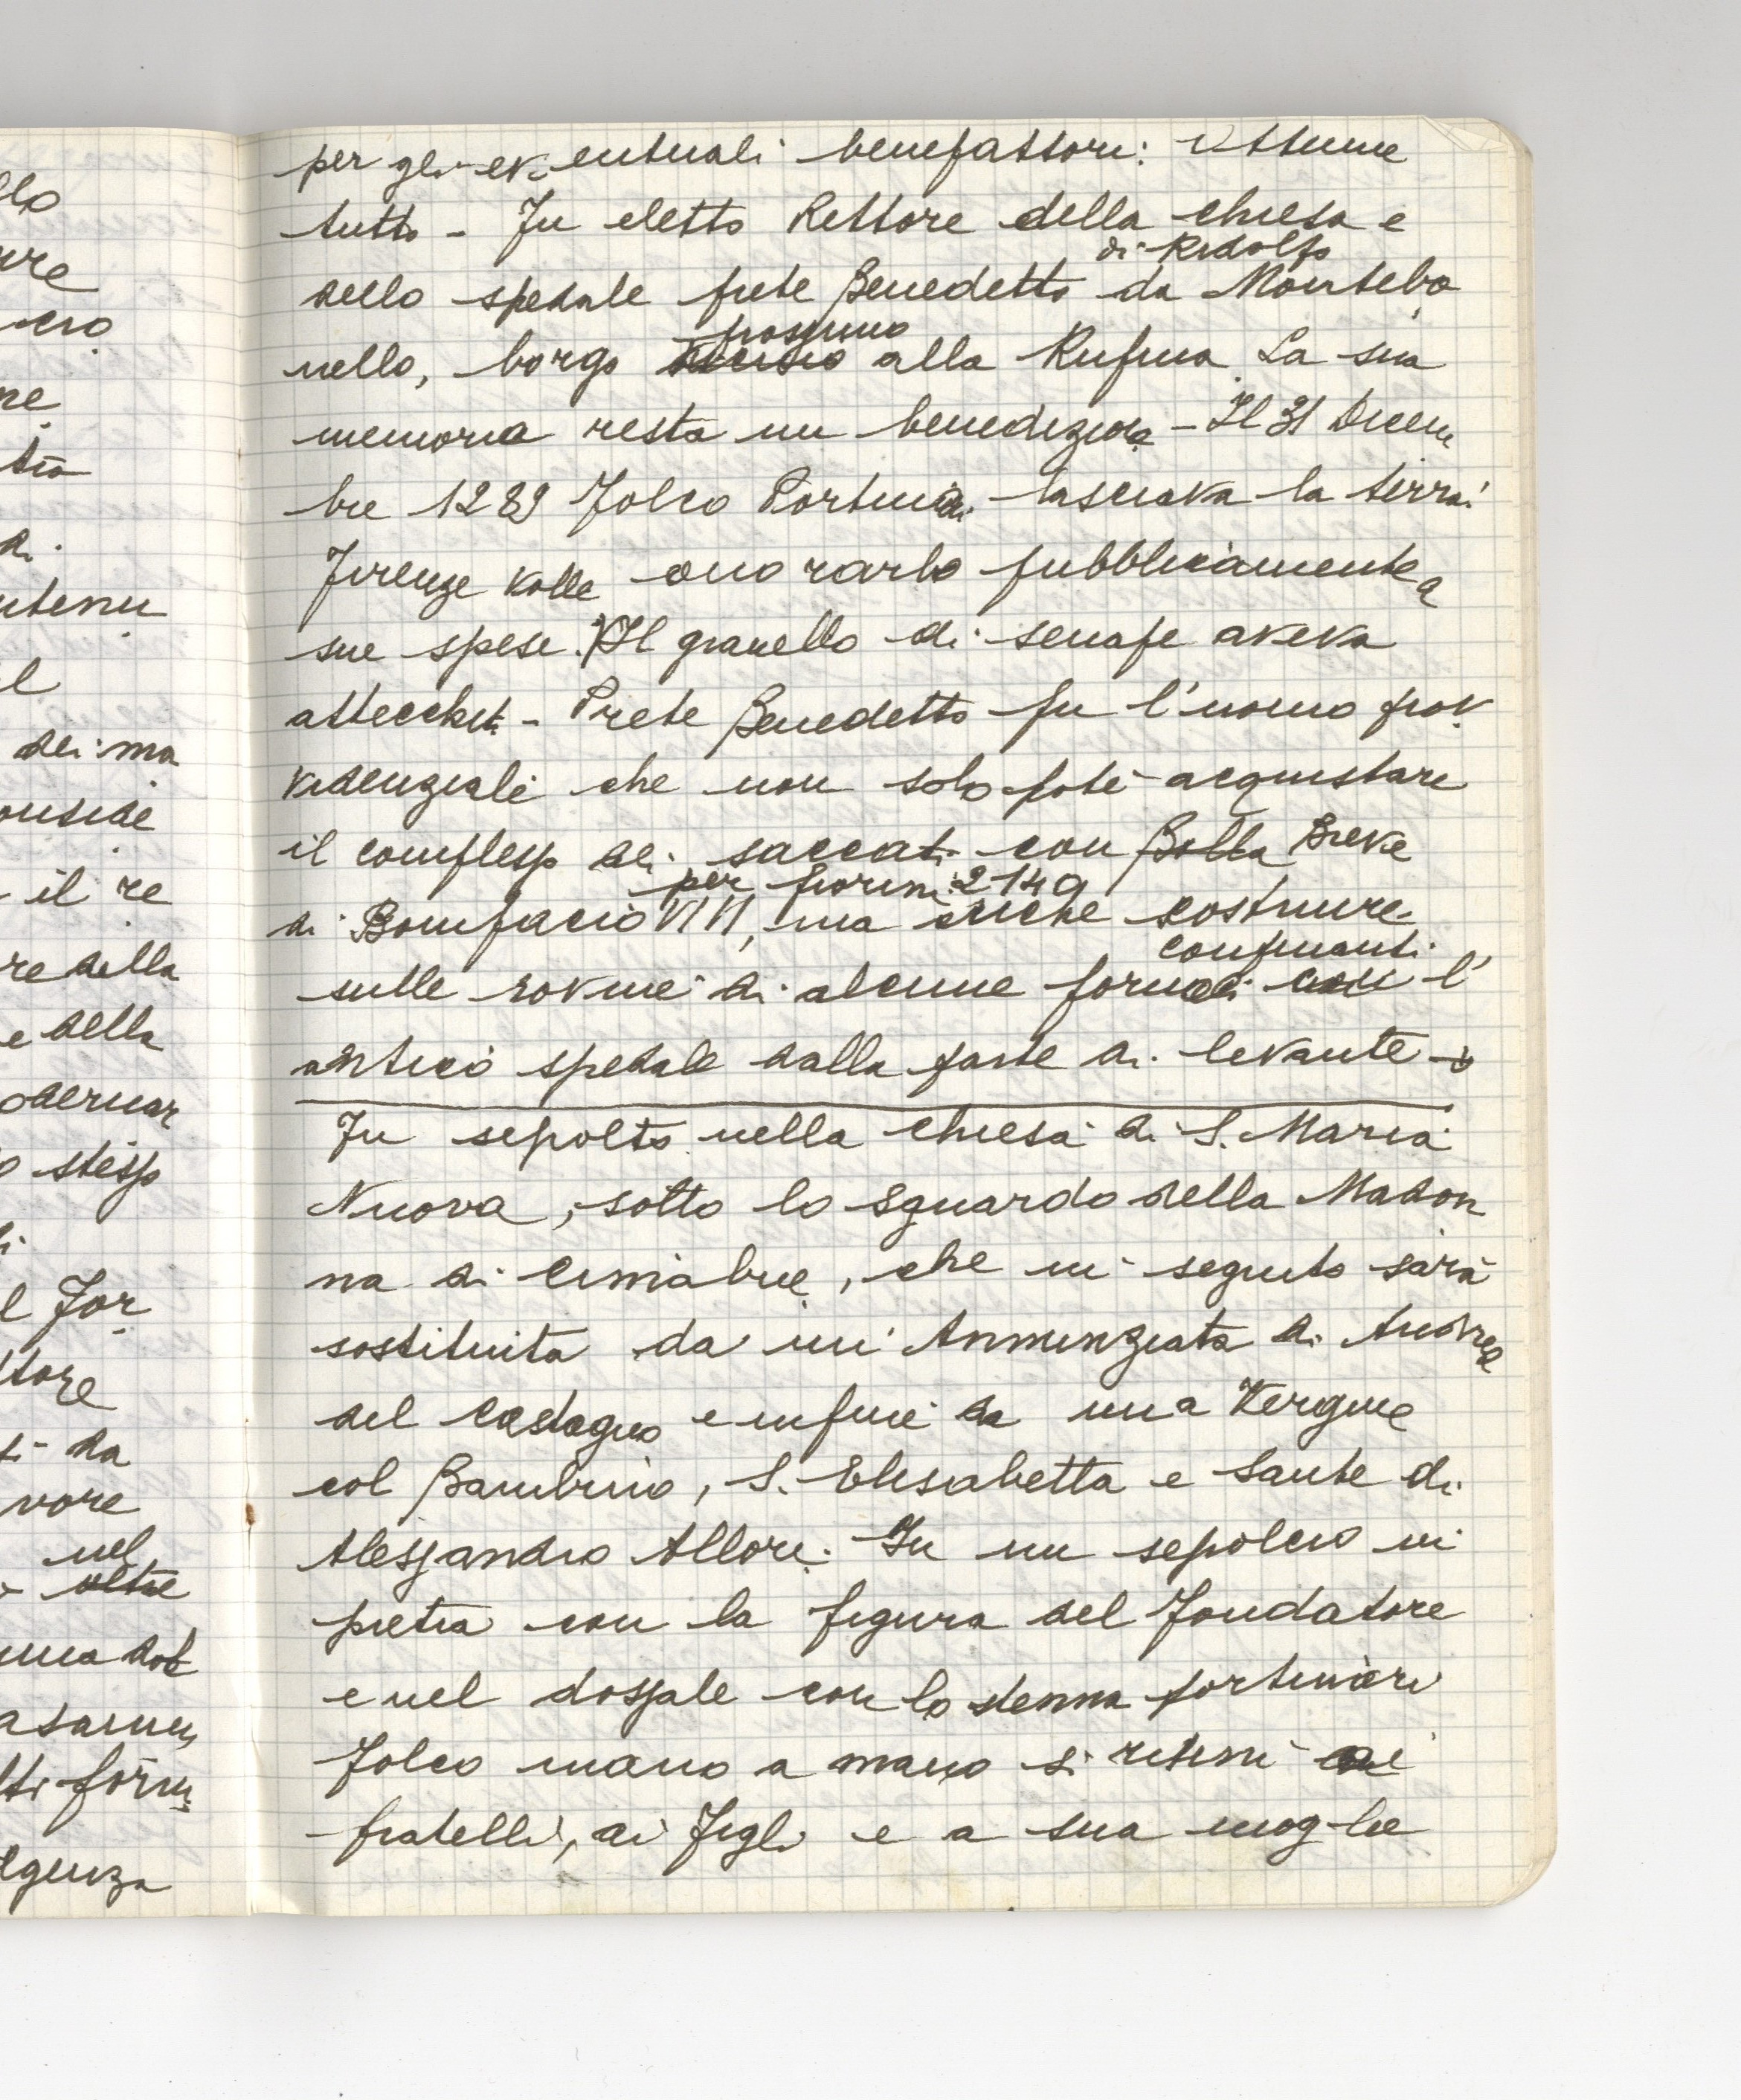 lo
ure
cro
ne
tra
di
ntenu
l
dei ma
onside
il re
re della
e della
odernar
o stesso
l For
tore
ti da
vore
nel
oltre
una dot
asamen
tti forni
lgenza
per gli eventuali benefattori: ottenne
tutto - Fu eletto Rettore della chiesa e
di Ridolfo
dello spedale prete Benedetto da Montebo
prossimo
nello, borgo vicino alla Rufina. La sua
memoria resta in benedizione - Il 31 Dicem
bre 1289 Folco Portinari lasciava la terra:
Firenze volle onorarlo pubblicamente a
sue spese. Il granello di senape aveva
attecchito - Prete Benedetto fu l'uomo prov
videnziale che non solo poté acquistare
il complesso dei saccati con Bolla Breve
per fiorini 2140
di Bonifacio VIII, ma anche costruire
confinanti
sulle rovine di alcune fornaci con l'
antico spedale dalla parte di levante
Fu sepolto nella chiesa di S. Maria
Nuova, sotto lo sguardo della Madon
na di Cimabue, che in seguito sarà
sostituita da un' Annunziata di Andrea
del Castagno e infine da una Vergine
col Bambino, S. Elisabetta e Sante di
Alessandro Allori. In un sepolcro in
pietra con la figura del Fondatore
e nel dossale con lo stemma portinari
Folco mano a mano si riunì ai
fratelli, ai figli e a sua moglie